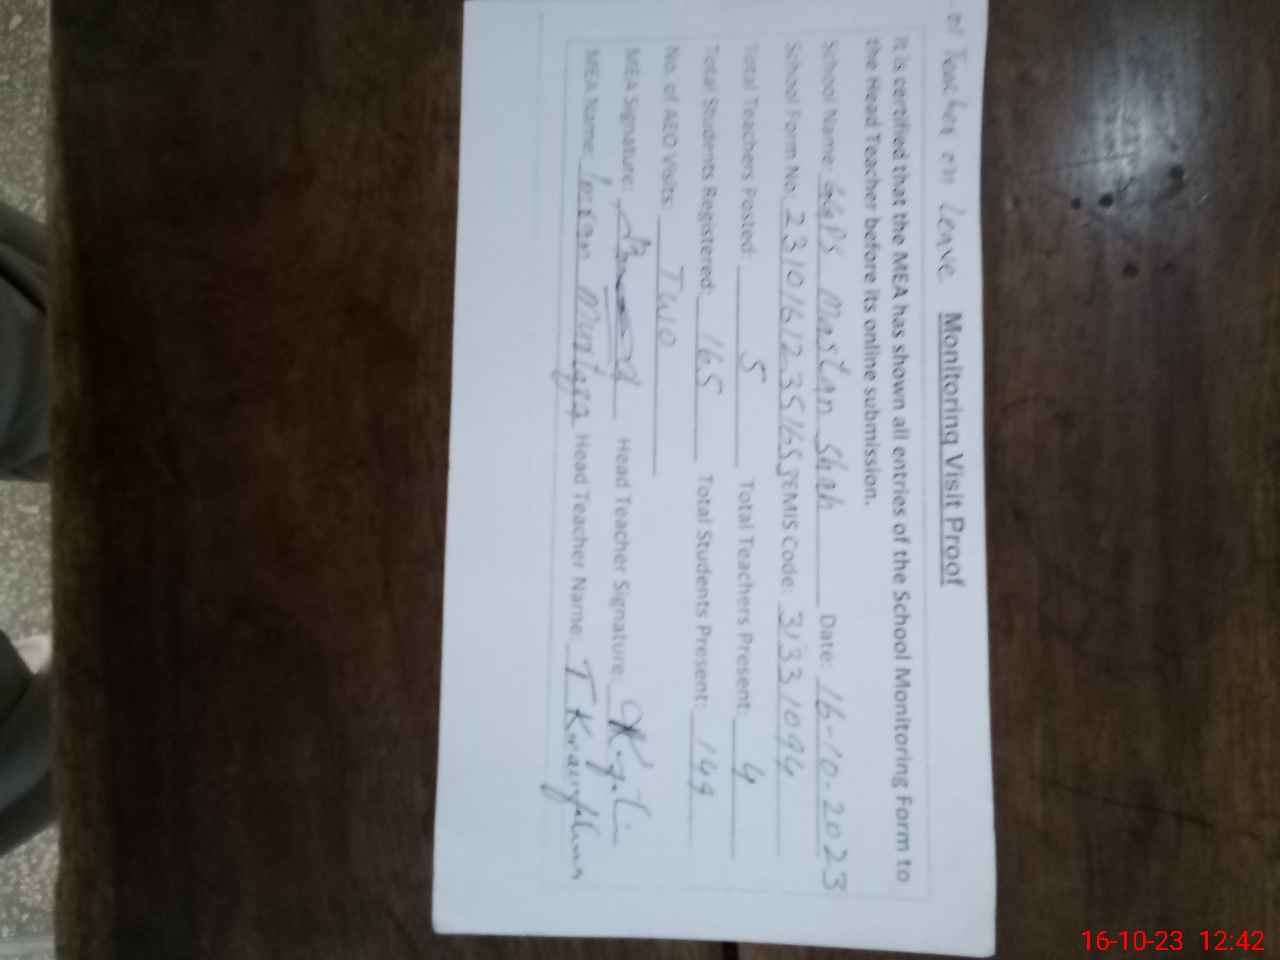 Teacher on leave
Monitoring Visit Proof
It is certified that the MEA has shown all entries of the School Monitoring Form to
the Head Teacher before its online submission.
School Name: GGPS Mastan Shah Date: 16-10-2023
School Form No: EMIS Code: 31331094
Total Teachers Posted: 5 Total Teachers Present: 4
Total Students Registered: 165 Total Students Present: 149
No. of AEO Visits: TWO
MEA Signature: Head Teacher Signature:
MEA Name: Imran Mustafa Head Teacher Name: T
16-10-23 12:42